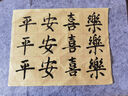 平安喜樂
平安喜樂
平安喜樂